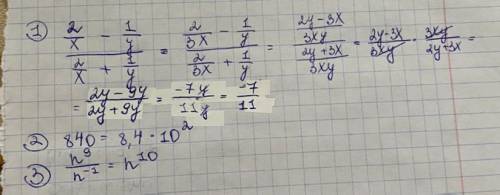 ① (2/x - 1/y)/(2/x + 1/y) = (2/3x - 1/y)/(2/3x + 1/y) = ((2y-3x)/3xy)/((2y+3x)/3xy) = (2y-3x)/3xy · 3xy/(2y+3x) =
= (2y-9y)/(2y+9y) = -7y/11y = -7/11
② 840 = 8,4 · 10²
③ n⁹/n⁻¹ = n¹⁰